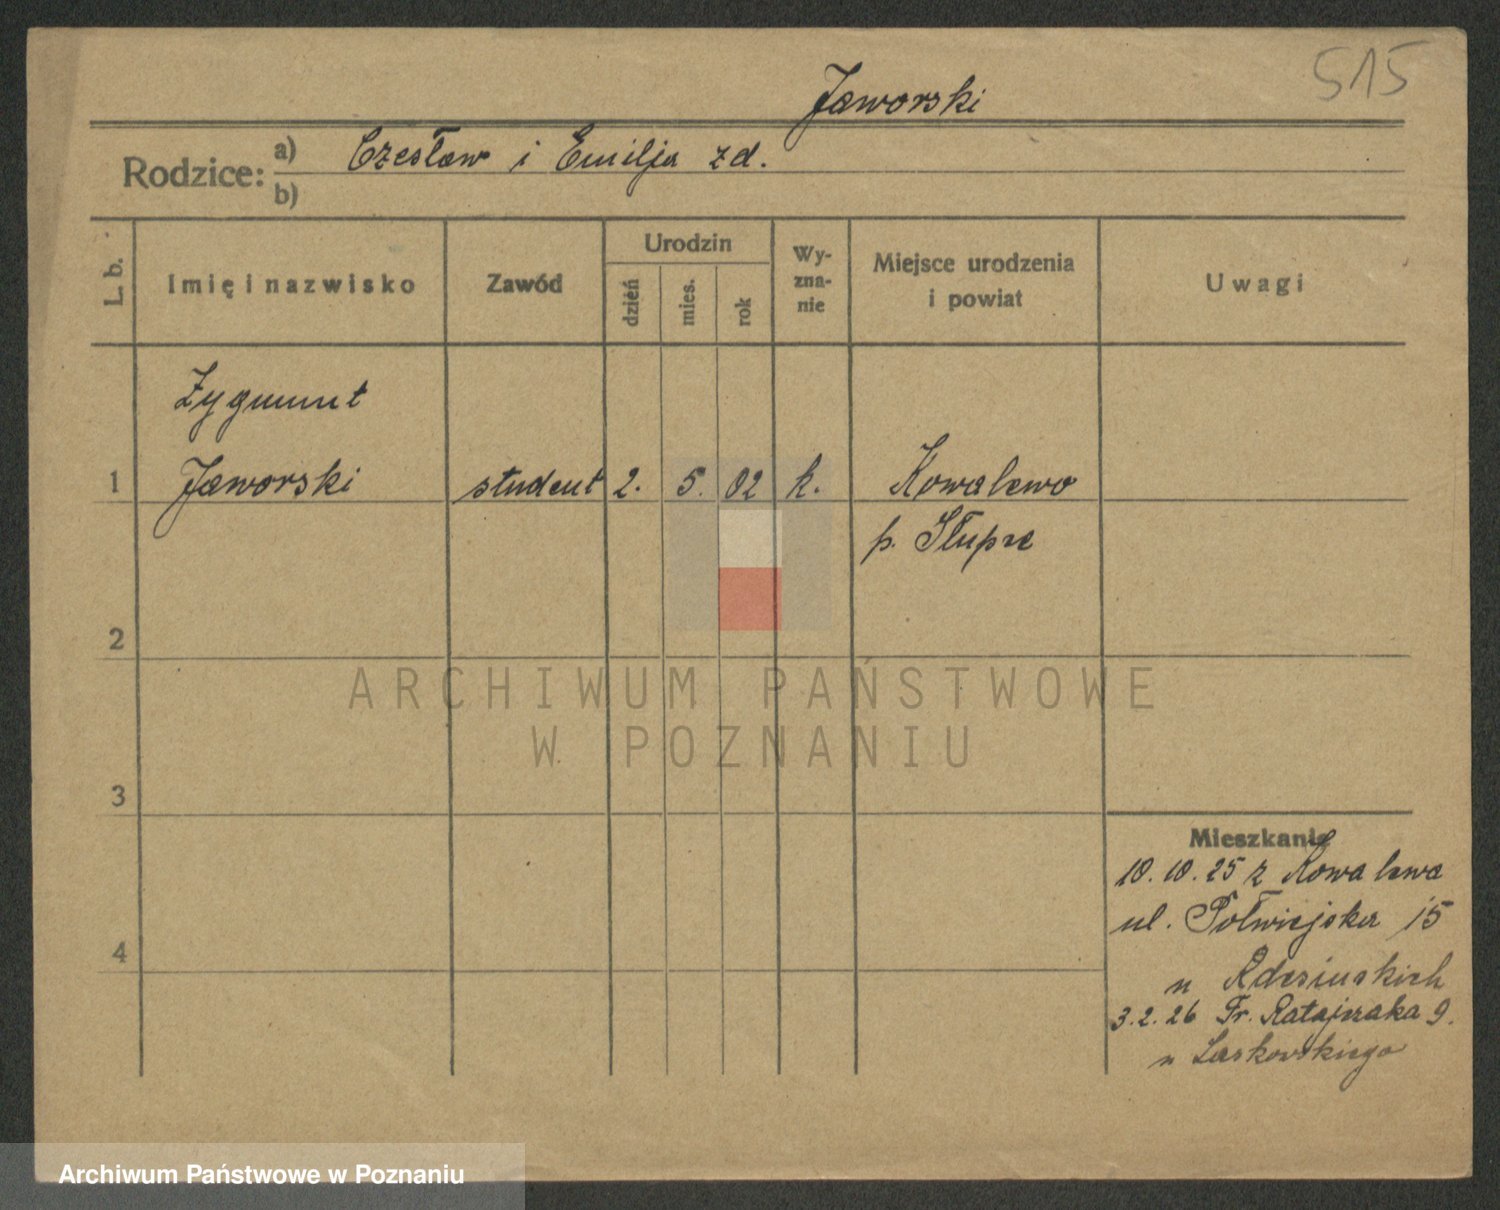 515
Jaworski
Rodzice:
a) Czesław i Emilja zd.
b)
L. b.
Imię i nazwisko
Zawód
Urodzin
dzień
mies.
rok
Wy-
zna-
nie
Miejsce urodzenia
i powiat
Uwagi
Zygmunt
1 Jaworski student 2. 5. 02 k. Kowalewo
p. Słupca
2
3
4
Mieszkanie
10.10.25 z Kowalewa
ul. Półwiejska 15
u
3.2.26 Fr. Ratajczaka 9.
u Laskowskiego
ARCHIWUM PAŃSTWOWE
W POZNANIU
Archiwum Państwowe w Poznaniu